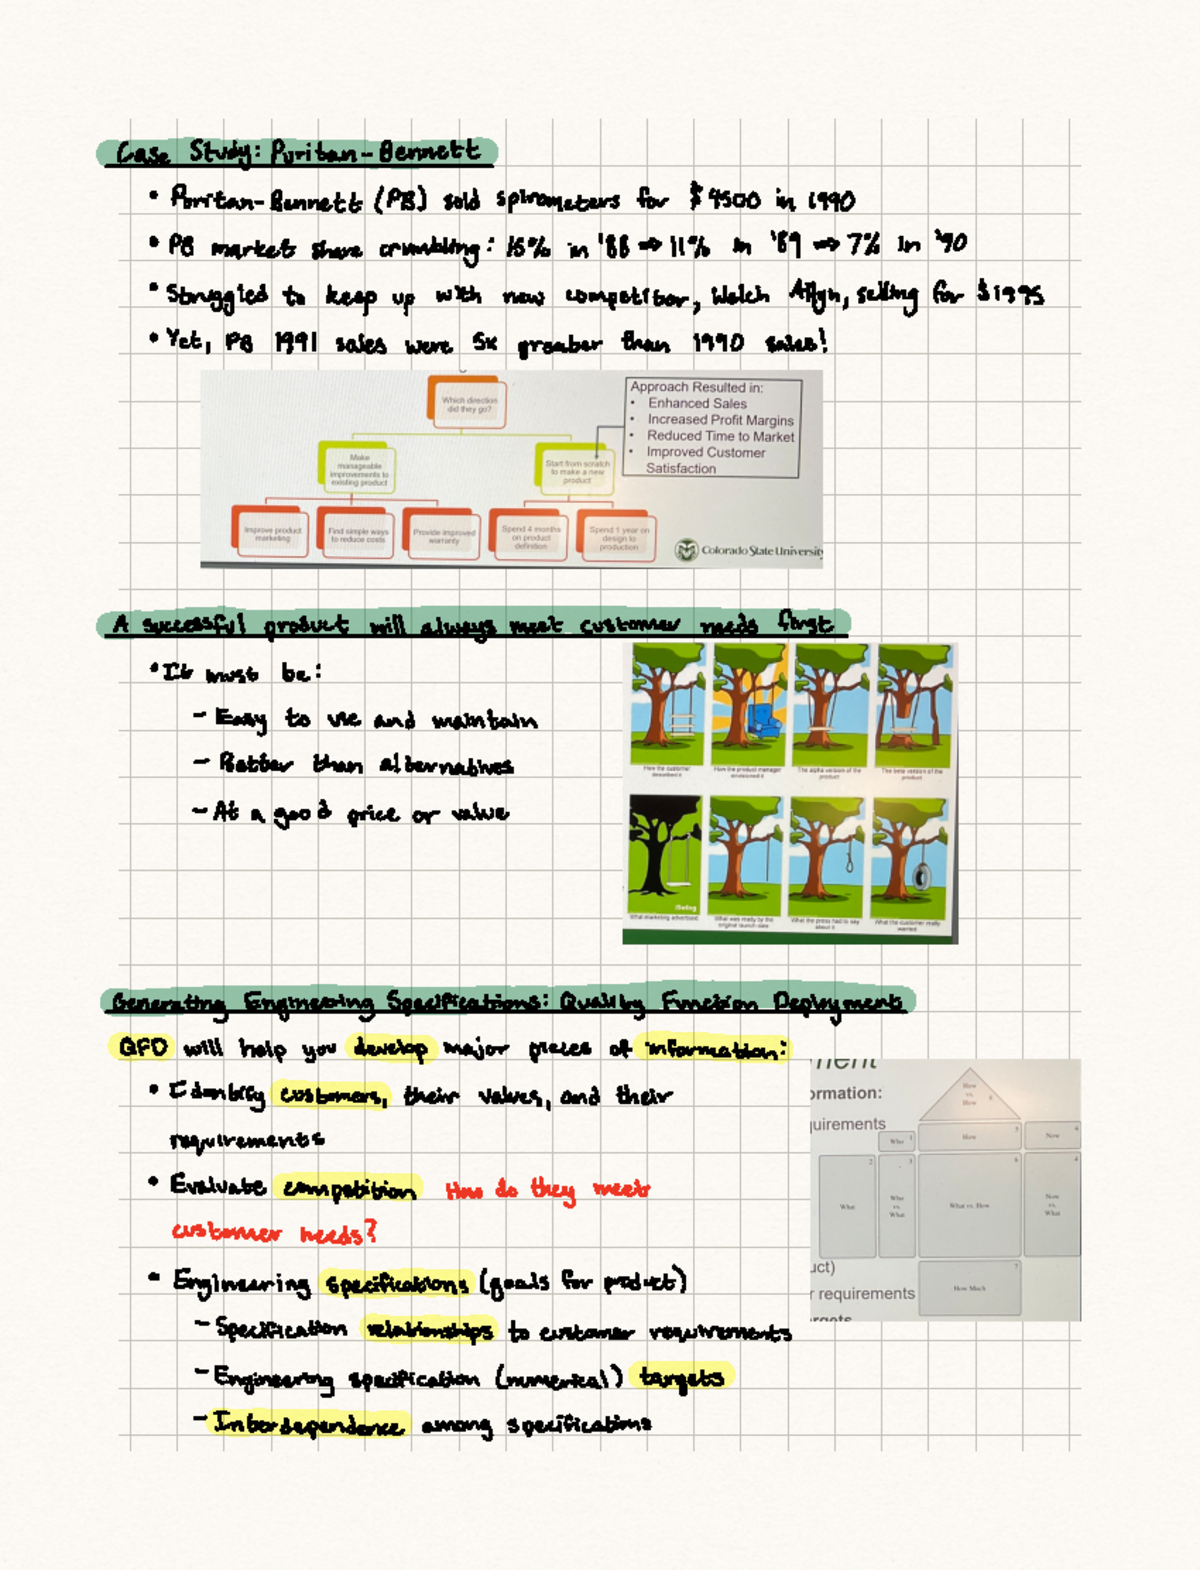 Case Study: Puritan-Bennett
• Puritan-Bennett (PB) sold spirometers for $4500 in 1990
• PB market share crumbling: 15% in '88 ⇒ 11% in '89 ⇒ 7% in '90
• Struggled to keep up with new competitor, Welch Allyn, selling for $1995
• Yet, PB 1991 sales were 5x greater than 1990 sales!
Which direction
did they go?
Approach Resulted in:
• Enhanced Sales
• Increased Profit Margins
• Reduced Time to Market
• Improved Customer
Satisfaction
Make
manageable
improvements to
existing product
Start from scratch
to make a new
product
Improve product
marketing
Find simple ways
to reduce costs
Provide improved
warranty
Spend 4 months
on product
definition
Spend 1 year on
design to
production
Colorado State University
A successful product will always meet customer needs first
• It must be:
- Easy to use and maintain
- Better than alternatives
- At a good price or value
How the customer
described it
How the product manager
envisioned it
The alpha version of the
product
The beta version of the
product
What marketing advertised
What was really by the
original launch date
What the press had to say
about it
What the customer really
wanted
Generating Engineering Specifications: Quality Function Deployment
QFD will help you develop major pieces of information:
• Identify customers, their values, and their
requirements
• Evaluate competition How do they meet
customer needs?
• Engineering specifications (goals for product)
- Specification relationships to customer requirements
- Engineering specification (numerical) targets
- Interdependence among specifications
ment
ormation:
quirements
How
vs.
How
8
Who 1
How 5
Now 4
What 2
Who
vs.
What
3
What vs. How 6
Now
vs.
What
4
uct)
r requirements
How Much 7